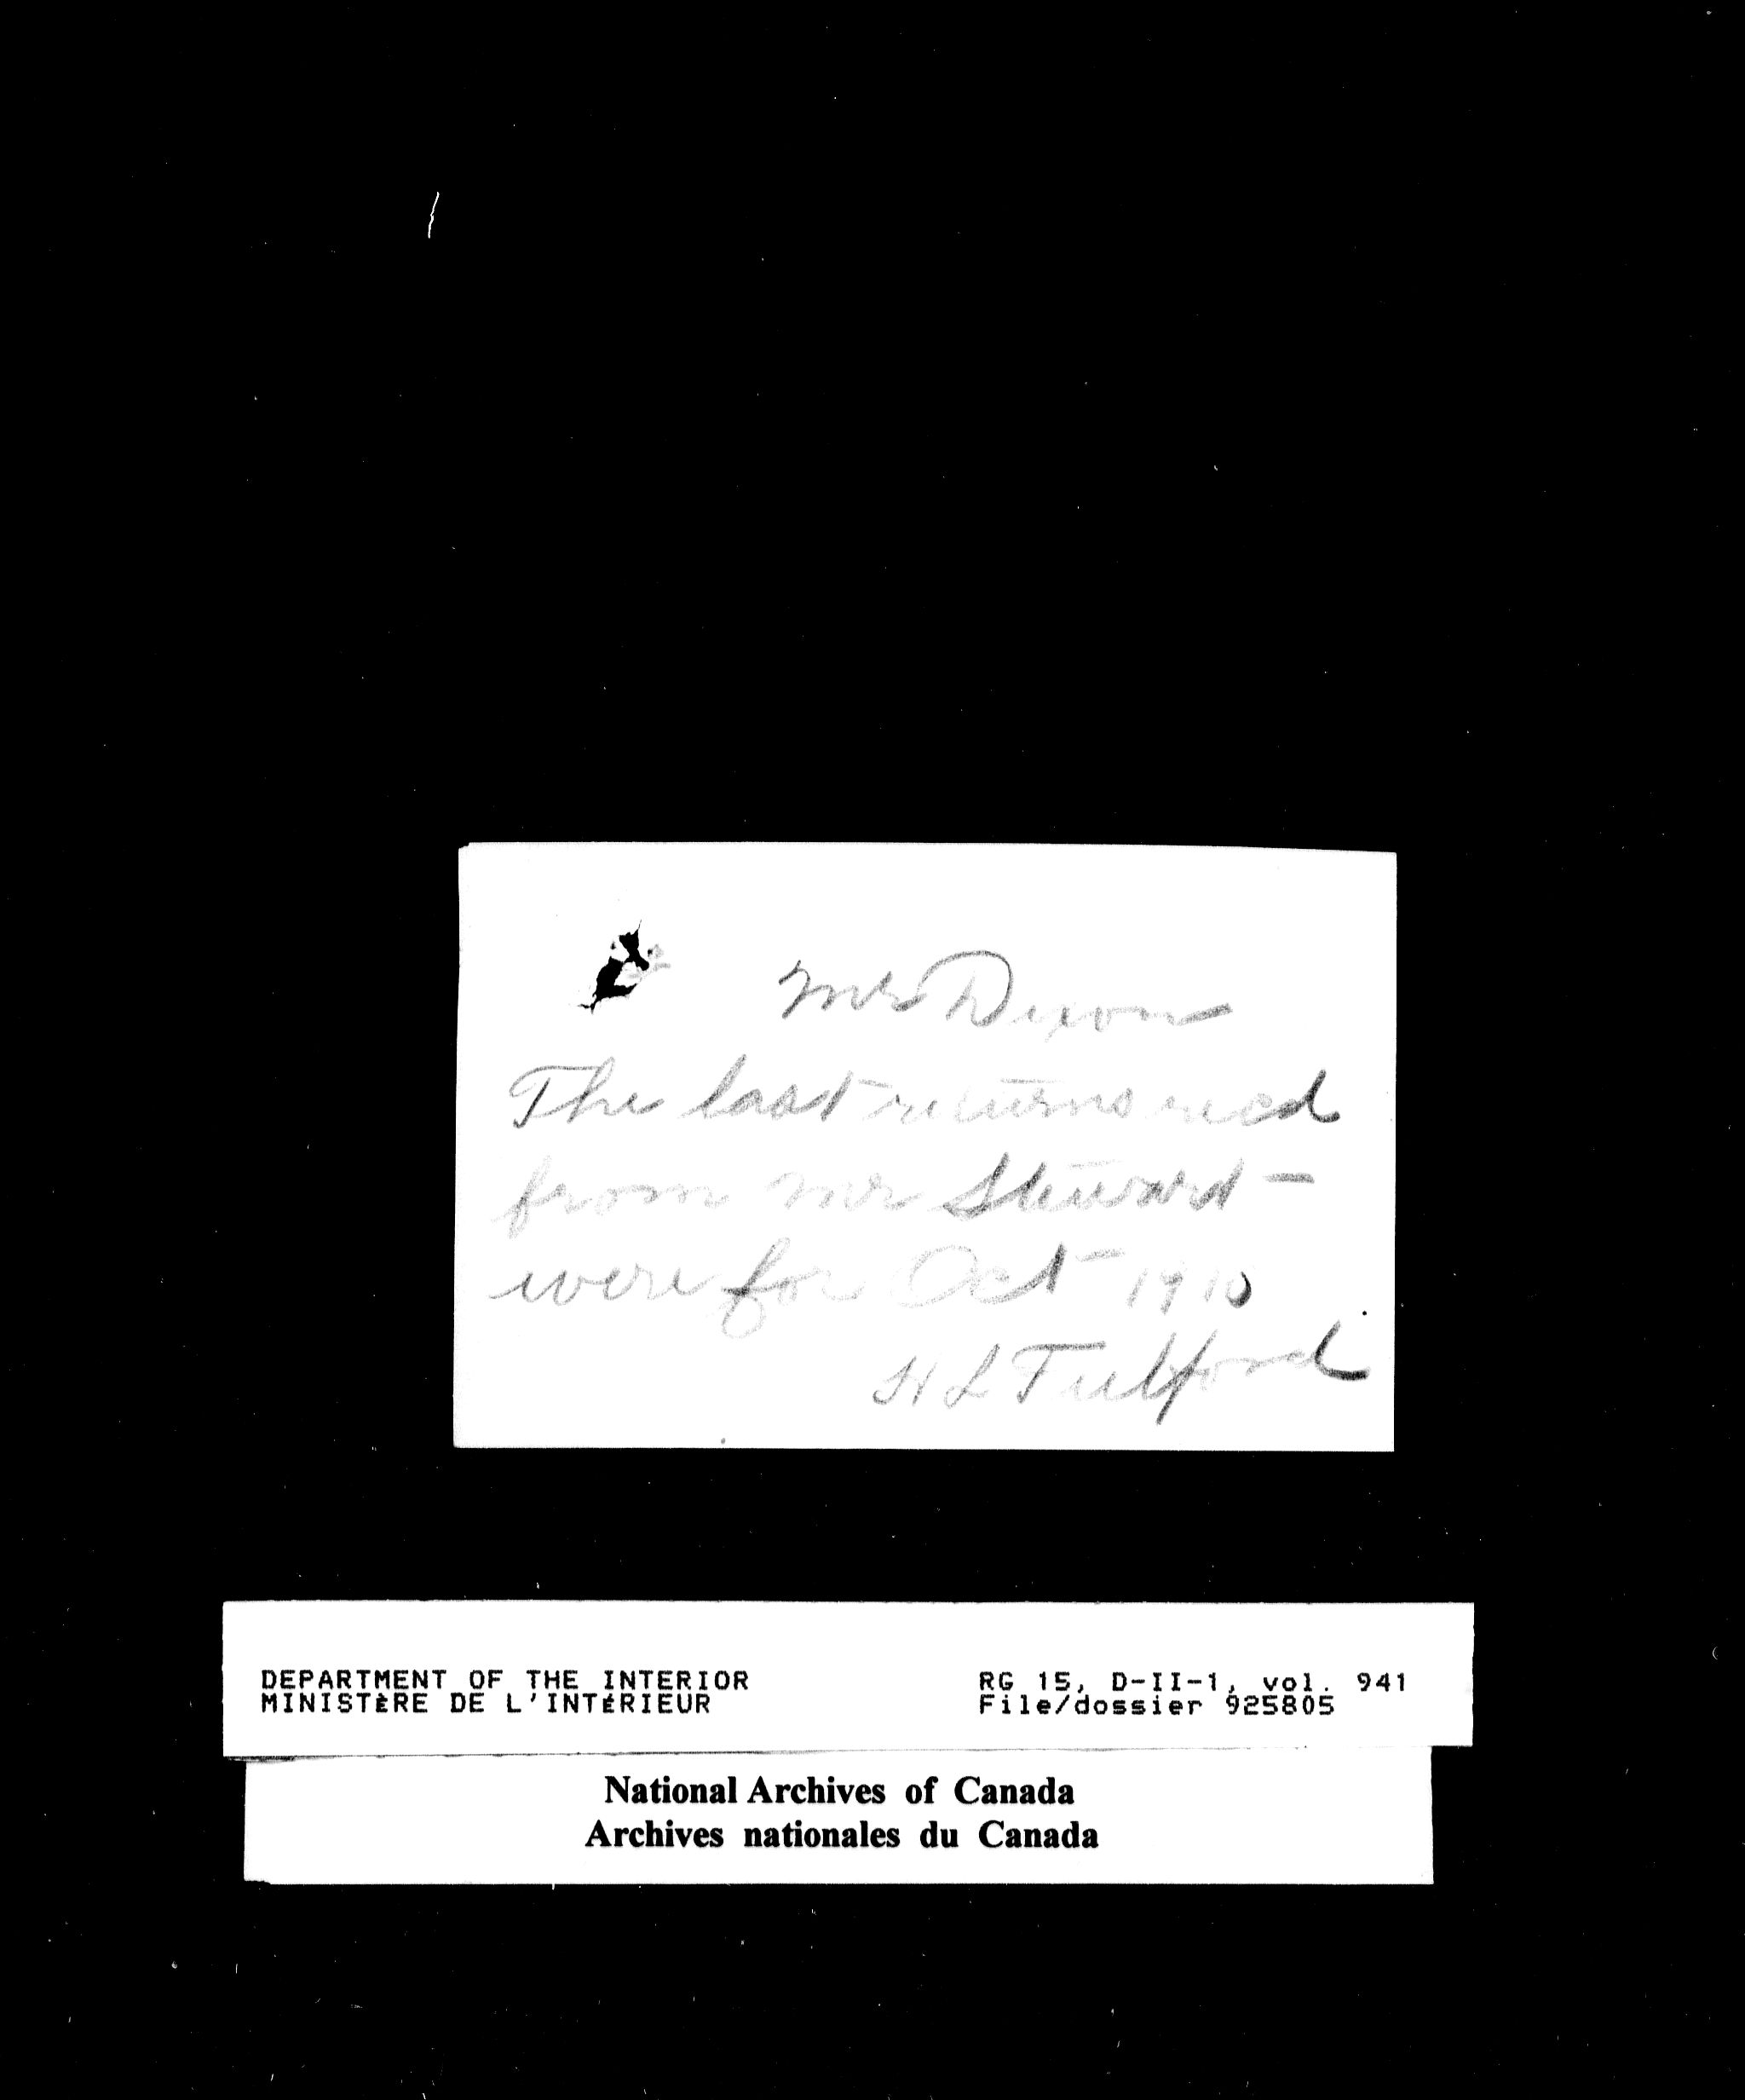 Mr Dixon
The last returns recd
from Mr Steward -
were for Oct 1910
H L Fulford
DEPARTMENT OF THE INTERIOR
MINISTÈRE DE L'INTÉRIEUR
RG 15, D-II-1, vol. 941
File/dossier 925805
National Archives of Canada
Archives nationales du Canada